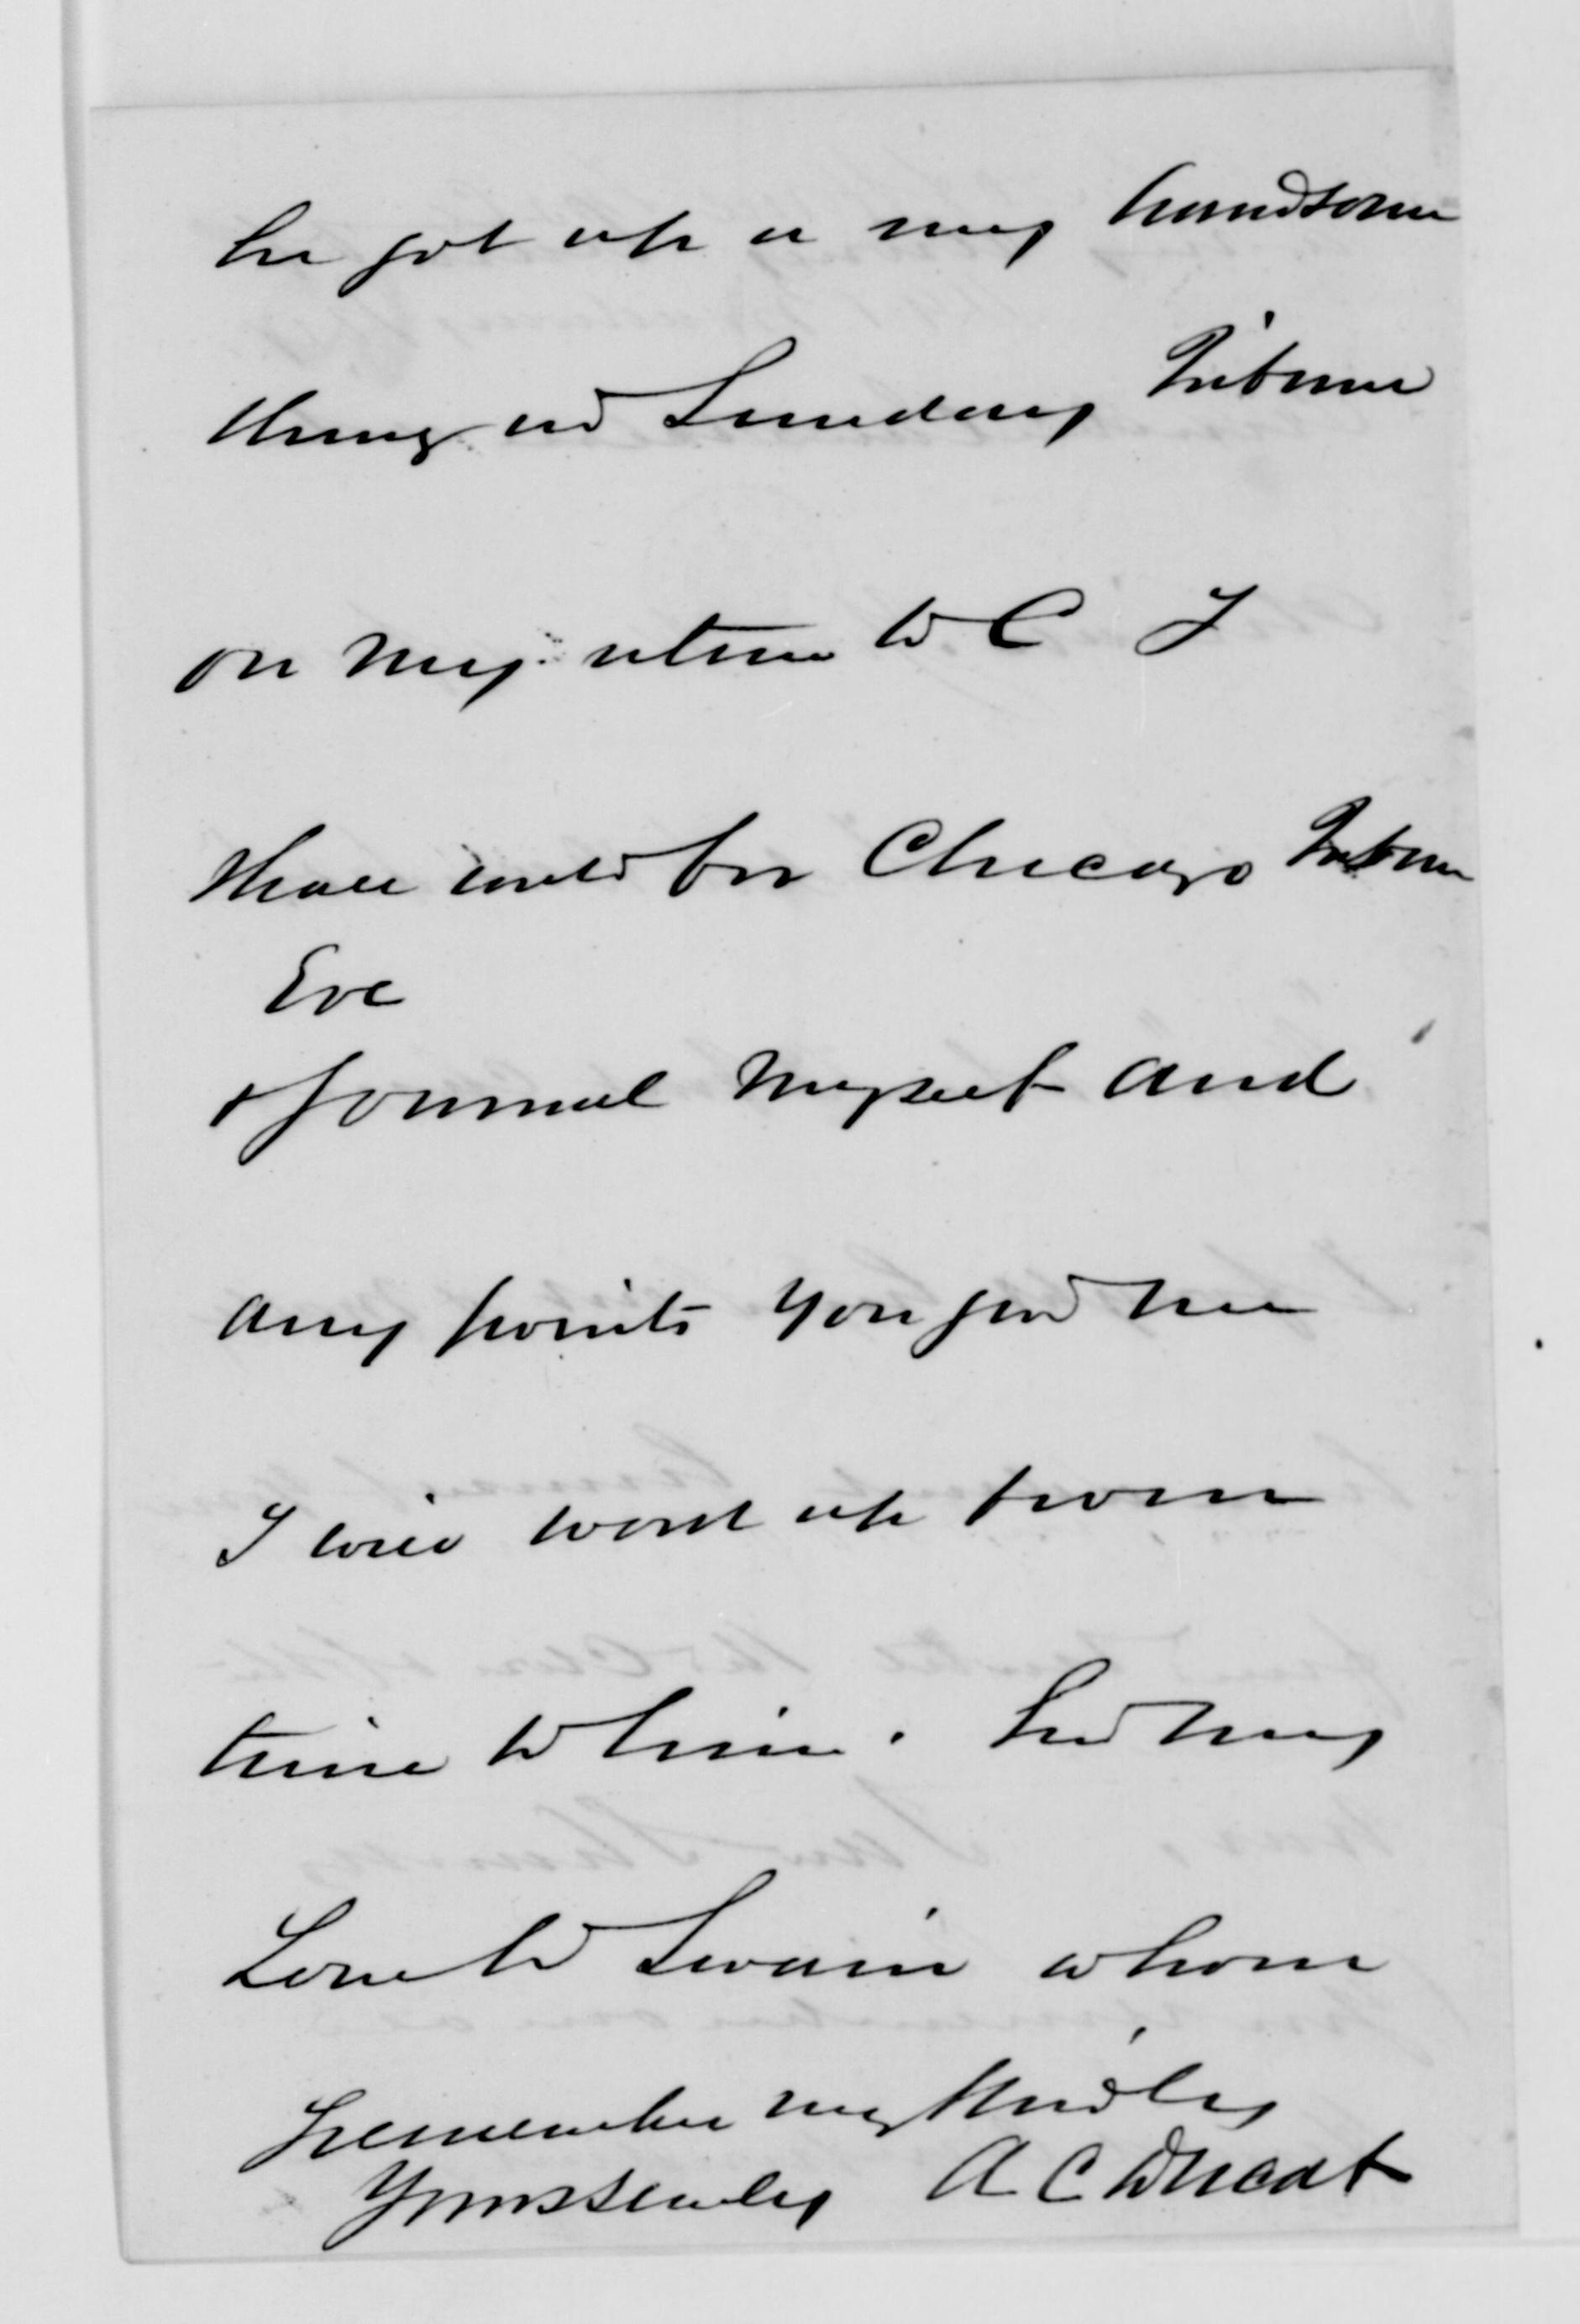 he got up a very handsome
thing in Sunday Tribune
on my return to C I
shall write for Chicago Tribune
Eve
& Journal myself and
any points you give me
I will work up from
time to time.
Love to Swain whom
remember my kindly
Yours A C Ducat